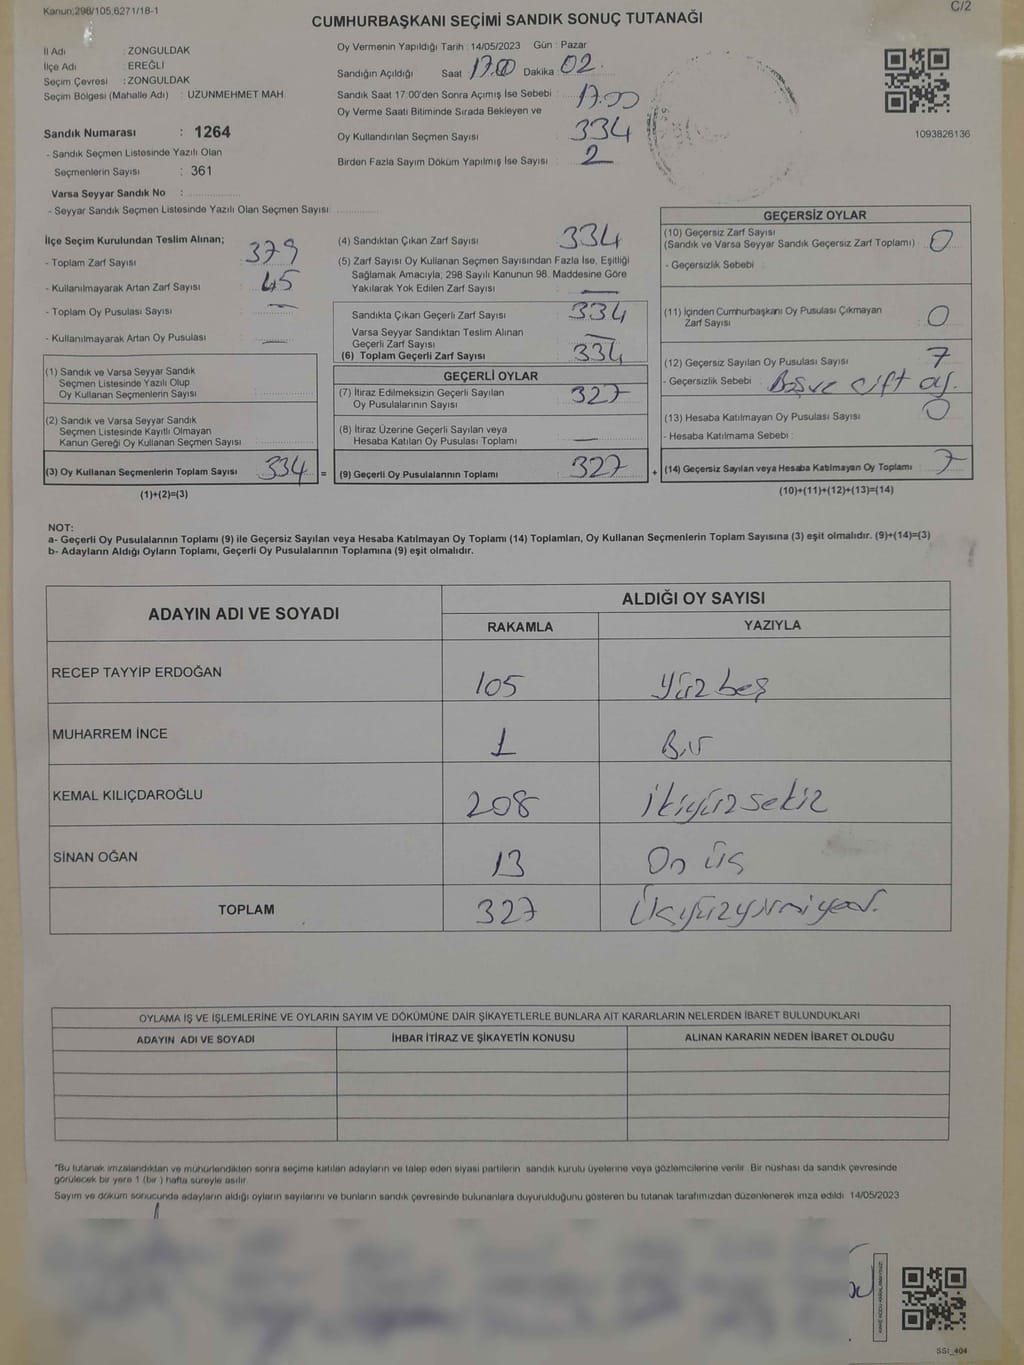 Kanun:298/105;6271/18-1
C/2
CUMHURBAŞKANI SEÇİMİ SANDIK SONUÇ TUTANAĞI
İl Adı : ZONGULDAK
İlçe Adı : EREĞLİ
Seçim Çevresi : ZONGULDAK
Seçim Bölgesi (Mahalle Adı) : UZUNMEHMET MAH.
Oy Vermenin Yapıldığı Tarih : 14/05/2023 Gün : Pazar
Sandığın Açıldığı Saat 17.00 Dakika : 02
Sandık Saat 17:00'den Sonra Açımış İse Sebebi : 17.00
Oy Verme Saati Bitiminde Sırada Bekleyen ve
Oy Kullandırılan Seçmen Sayısı 334
Birden Fazla Sayım Döküm Yapılmış İse Sayısı 2
1093826136
Sandık Numarası : 1264
- Sandık Seçmen Listesinde Yazılı Olan
Seçmenlerin Sayısı : 361
Varsa Seyyar Sandık No :
- Seyyar Sandık Seçmen Listesinde Yazılı Olan Seçmen Sayısı:
İlçe Seçim Kurulundan Teslim Alınan;
- Toplam Zarf Sayısı 379
- Kullanılmayarak Artan Zarf Sayısı 45
- Toplam Oy Pusulası Sayısı —
- Kullanılmayarak Artan Oy Pusulası —
(1) Sandık ve Varsa Seyyar Sandık
Seçmen Listesinde Yazılı Olup
Oy Kullanan Seçmenlerin Sayısı
(2) Sandık ve Varsa Seyyar Sandık
Seçmen Listesinde Kayıtlı Olmayan
Kanun Gereği Oy Kullanan Seçmen Sayısı
(3) Oy Kullanan Seçmenlerin Toplam Sayısı 334 =
(1)+(2)=(3)
(4) Sandıktan Çıkan Zarf Sayısı 334
(5) Zarf Sayısı Oy Kullanan Seçmen Sayısından Fazla İse, Eşitliği
Sağlamak Amacıyla, 298 Sayılı Kanunun 98. Maddesine Göre
Yakılarak Yok Edilen Zarf Sayısı —
Sandıkta Çıkan Geçerli Zarf Sayısı 334
Varsa Seyyar Sandıktan Teslim Alınan
Geçerli Zarf Sayısı —
(6) Toplam Geçerli Zarf Sayısı 334
GEÇERLİ OYLAR
(7) İtiraz Edilmeksizin Geçerli Sayılan
Oy Pusulalarının Sayısı 327
(8) İtiraz Üzerine Geçerli Sayılan veya
Hesaba Katılan Oy Pusulası Toplamı —
(9) Geçerli Oy Pusulalarının Toplamı 327 +
GEÇERSİZ OYLAR
(10) Geçersiz Zarf Sayısı
(Sandık ve Varsa Seyyar Sandık Geçersiz Zarf Toplamı) 0
- Geçersizlik Sebebi :
(11) İçinden Cumhurbaşkanı Oy Pusulası Çıkmayan
Zarf Sayısı 0
(12) Geçersiz Sayılan Oy Pusulası Sayısı 7
- Geçersizlik Sebebi : Boş ve çift oy.
(13) Hesaba Katılmayan Oy Pusulası Sayısı 0
- Hesaba Katılmama Sebebi :
(14) Geçersiz Sayılan veya Hesaba Katılmayan Oy Toplamı 7
(10)+(11)+(12)+(13)=(14)
NOT:
a- Geçerli Oy Pusulalarının Toplamı (9) ile Geçersiz Sayılan veya Hesaba Katılmayan Oy Toplamı (14) Toplamları, Oy Kullanan Seçmenlerin Toplam Sayısına (3) eşit olmalıdır. (9)+(14)=(3)
b- Adayların Aldığı Oyların Toplamı, Geçerli Oy Pusulalarının Toplamına (9) eşit olmalıdır.
ADAYIN ADI VE SOYADI
ALDIĞI OY SAYISI
RAKAMLA YAZIYLA
RECEP TAYYİP ERDOĞAN 105 Yüz beş
MUHARREM İNCE 1 Bir
KEMAL KILIÇDAROĞLU 208 İkiyüz sekiz
SİNAN OĞAN 13 On üç
TOPLAM 327 Üçyüzyirmiyedi.
OYLAMA İŞ VE İŞLEMLERİNE VE OYLARIN SAYIM VE DÖKÜMÜNE DAİR ŞİKAYETLERLE BUNLARA AİT KARARLARIN NELERDEN İBARET BULUNDUKLARI
ADAYIN ADI VE SOYADI İHBAR İTİRAZ VE ŞİKAYETİN KONUSU ALINAN KARARIN NEDEN İBARET OLDUĞU
*Bu tutanak imzalandıktan ve mühürlendikten sonra seçime katılan adayların ve talep eden siyasi partilerin sandık kurulu üyelerine veya gözlemcilerine verilir. Bir nüshası da sandık çevresinde
görülecek bir yere 1 (bir) hafta süreyle asılır.
Sayım ve döküm sonucunda adayların aldığı oyların sayılarını ve bunların sandık çevresinde bulunanlara duyurulduğunu gösteren bu tutanak tarafımızdan düzenlenerek imza edildi. 14/05/2023
SSI_404